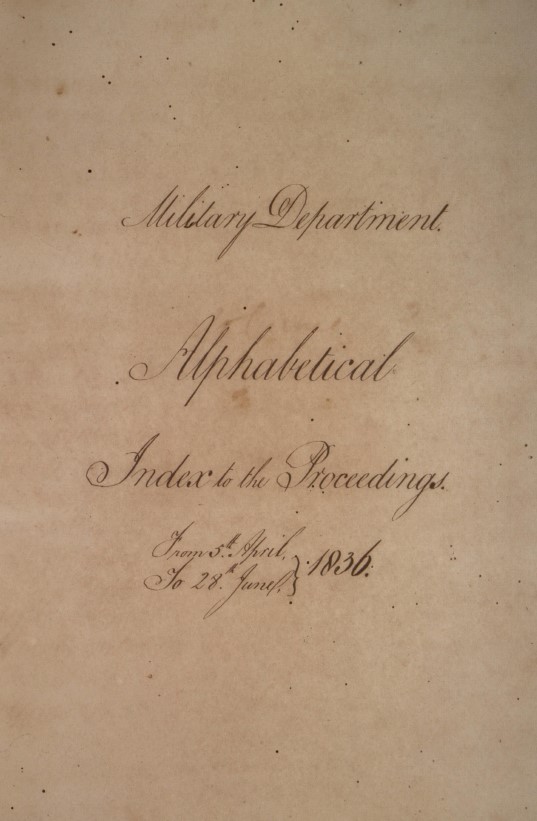 Military Department.
Alphabetical
Index to the Proceedings.
From 5th. April.
To 28th. June. } 1836.